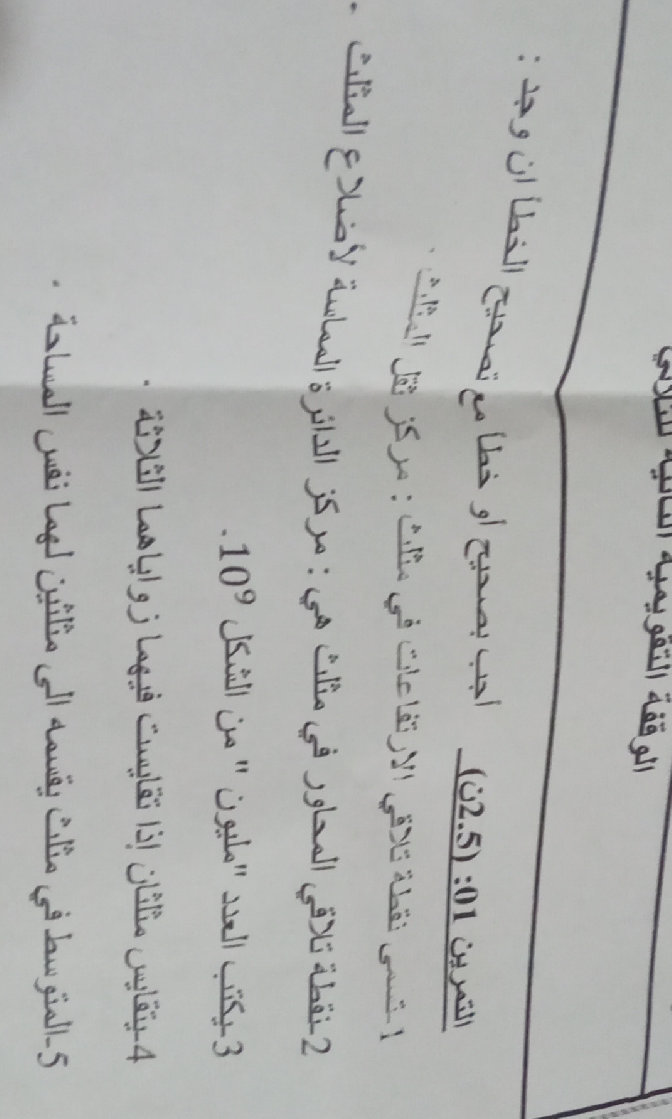 الوقفة التقويمية الثانية للثلاثي
التمرين 01: (2.5ن) أجب بصحيح أو خطأ مع تصحيح الخطأ ان وجد :
1-تسمى نقطة تلاقي الارتفاعات في مثلث : مركز ثقل المثلث .
2-نقطة تلاقي المحاور في مثلث هي : مركز الدائرة المماسة لأضلاع المثلث .
3-يكتب العدد "مليون" من الشكل 10⁹ .
4-يتقايس مثلثان إذا تقايست فيهما زواياهما الثلاثة .
5-المتوسط في مثلث يقسمه الى مثلثين لهما نفس المساحة .